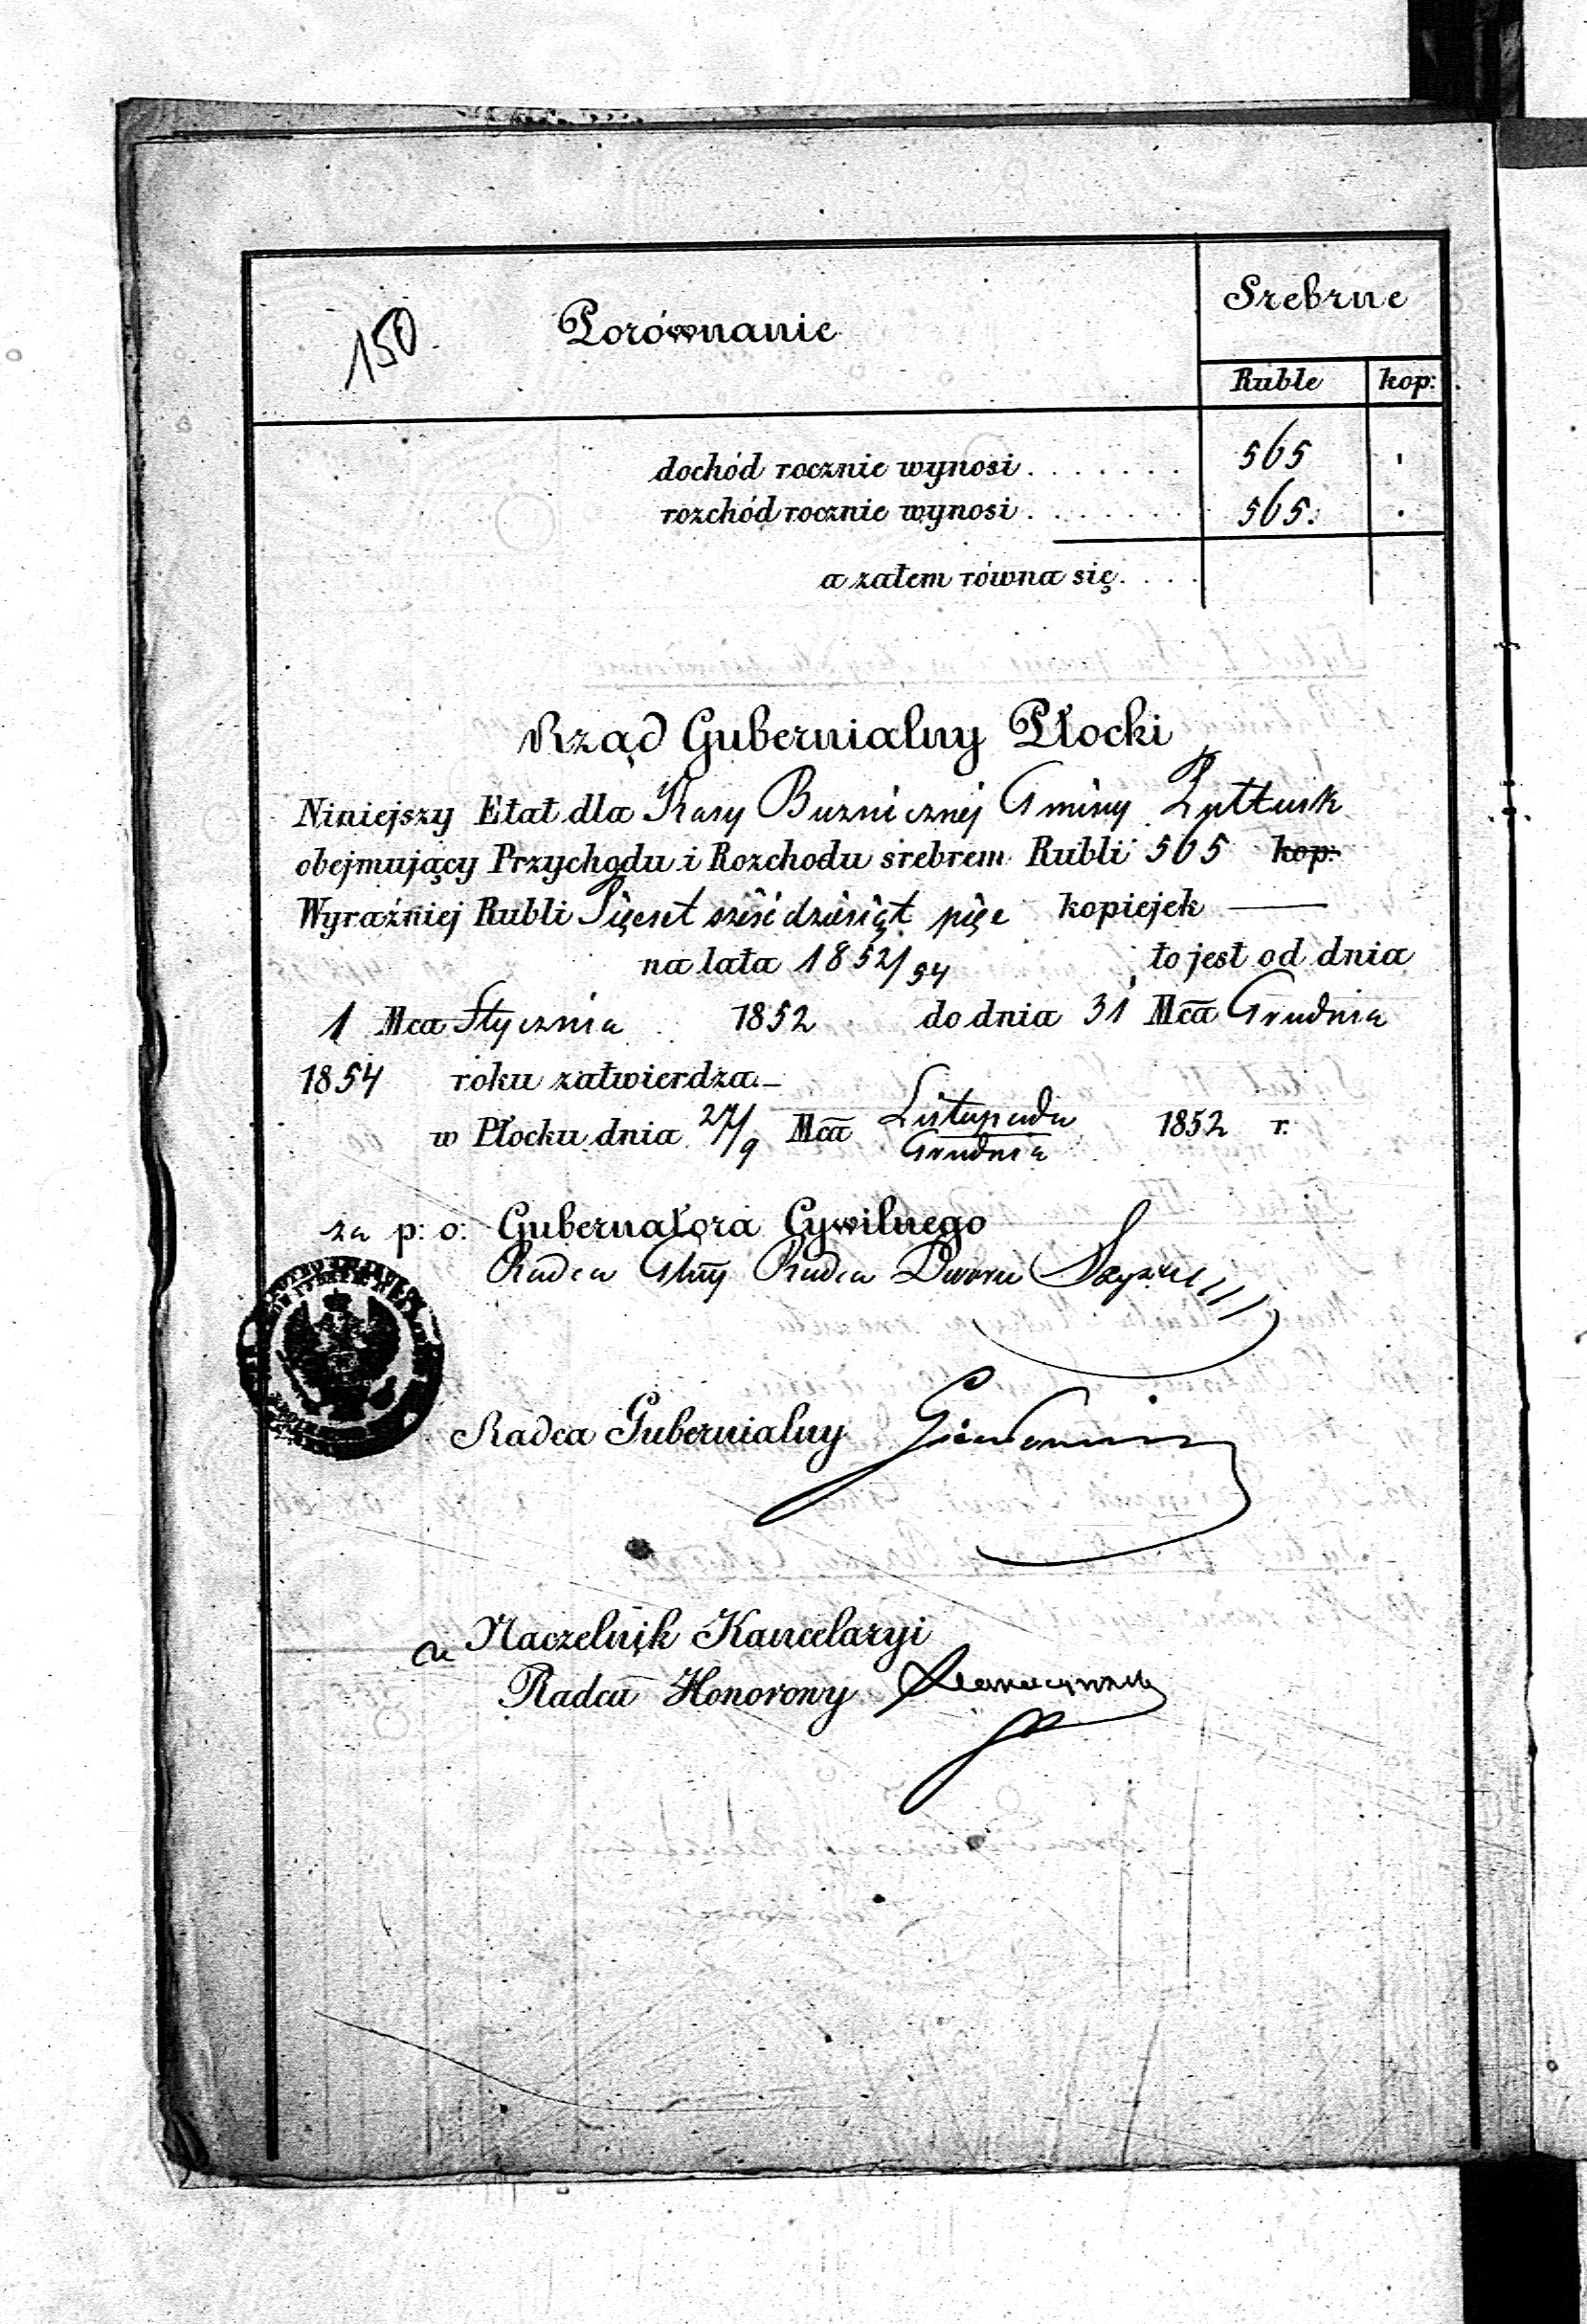 Srebrne
150 Porównanie
Ruble kop:
dochód rocznie wynosi . . . . . . . 565 .
rozchód rocznie wynosi . . . . . . . 565. .
a zatem równa się. . . .
Rząd Gubernialny Płocki
Niniejszy Etat dla Kasy Buznicznej Gminy Pułtusk
obejmujący Przychodu i Rozchodu srebrem Rubli 565 kop:
Wyraźniej Rubli Pięcset sześćdziesiąt pięc kopiejek —
na lata 1852/54 to jest od dnia
1 Mca Stycznia 1852 do dnia 31 Mca Grudnia
1854 roku zatwierdza.—
w Płocku dnia 27/9 Mca Listopada/Grudnia 1852 r.
za p: o: Gubernatora Cywilnego
Radca Radca Dworu
Radca Gubernialny
Naczelnik Kancelaryi
Radca Honorowy